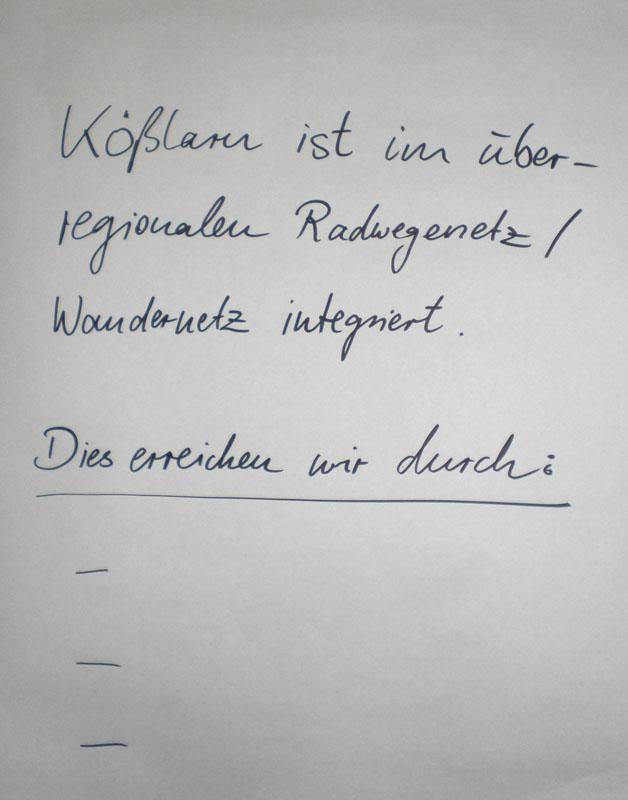 Kößlarn ist im über-
regionalen Radwegenetz /
Wandernetz integriert.
Dies erreichen wir durch:
–
–
–